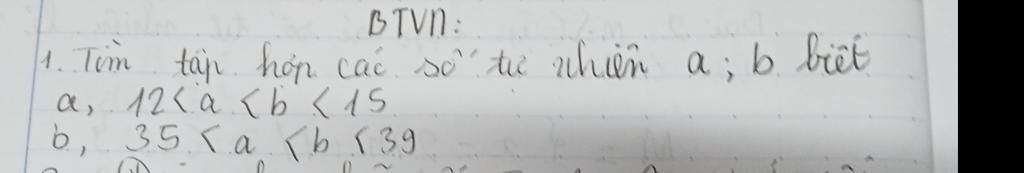 BTVN:
1. Tìm tập hợp các số tự nhiên a; b biết
a, 12 < a < b < 15
b, 35 < a < b < 39